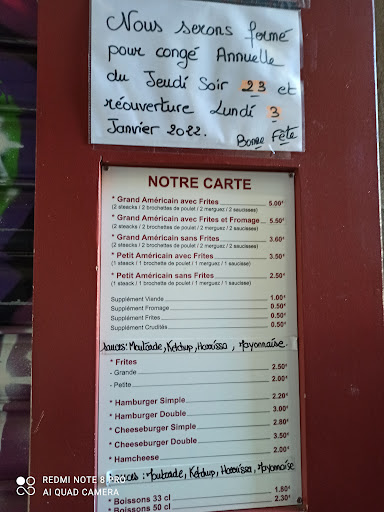 Nous serons fermé
pour congé Annuelle
du Jeudi Soir 23 et
réouverture Lundi 3
Janvier 2022.
Bonne Fête
NOTRE CARTE
* Grand Américain avec Frites 5.00€
(2 steacks / 2 brochettes de poulet / 2 merguez / 2 saucisses)
* Grand Américain avec Frites et Fromage 5.50€
(2 steacks / 2 brochettes de poulet / 2 merguez / 2 saucisses)
* Grand Américain sans Frites 3.60€
(2 steacks / 2 brochettes de poulet / 2 merguez / 2 saucisses)
* Petit Américain avec Frites 3.50€
(1 steack / 1 brochette de poulet / 1 merguez / 1 saucisse)
* Petit Américain sans Frites 2.50€
(1 steack / 1 brochette de poulet / 1 merguez / 1 saucisse)
Supplément Viande 1.00€
Supplément Fromage 0.50€
Supplément Frites 0.50€
Supplément Crudités 0.50€
Sauces: Moutarde, Ketchup, Harissa, Mayonnaise
* Frites
- Grande 2.50€
- Petite 2.00€
* Hamburger Simple 2.20€
* Hamburger Double 3.00€
* Cheeseburger Simple 2.80€
* Cheeseburger Double 3.50€
* Hamcheese 2.00€
Sauces: Moutarde, Ketchup, Harissa, Mayonnaise
* Boissons 33 cl 1.80€
* Boissons 50 cl 2.30€
REDMI NOTE 8 PRO
AI QUAD CAMERA